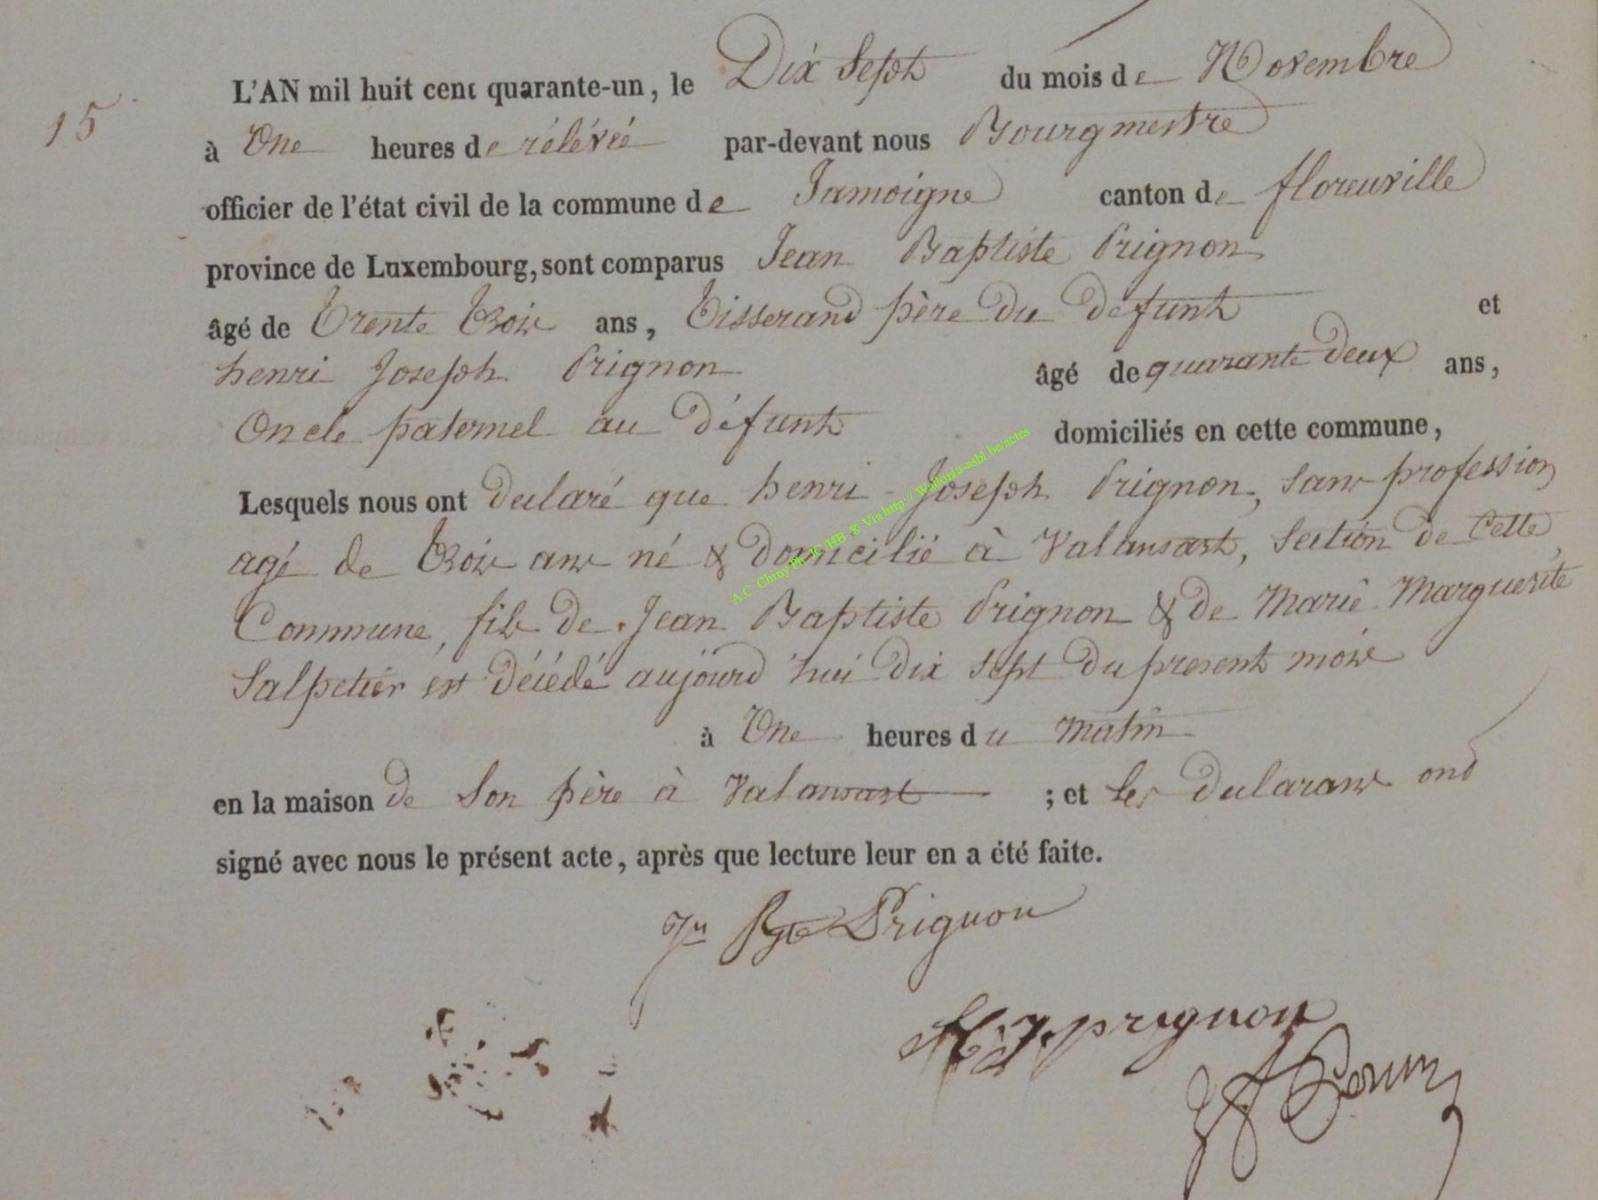 15
L'AN mil huit cent quarante-un, le Dix Sept du mois de Novembre
à Une heures de rélévée par-devant nous Bourgmestre
officier de l'état civil de la commune de Jamoigne canton de florenville
province de Luxembourg, sont comparus Jean Baptiste Prignon
âgé de Trente Trois ans, Tisserand père du défunt et
henri Joseph Prignon âgé de quarante deux ans,
Oncle paternel au défunt domiciliés en cette commune,
Lesquels nous ont déclaré que henri-Joseph Prignon, sans profession
agé de Trois ans né & domicilié à Valansart, Section de cette
Commune, fils de Jean Baptiste Prignon & de Marie Marguerite
Salpetier est décédé aujourd'hui dix sept du present mois
à Une heures du matin
en la maison de son père à Valansart ; et les declarans ont
signé avec nous le présent acte, après que lecture leur en a été faite.
Jn Bte Prignon
H J prignon